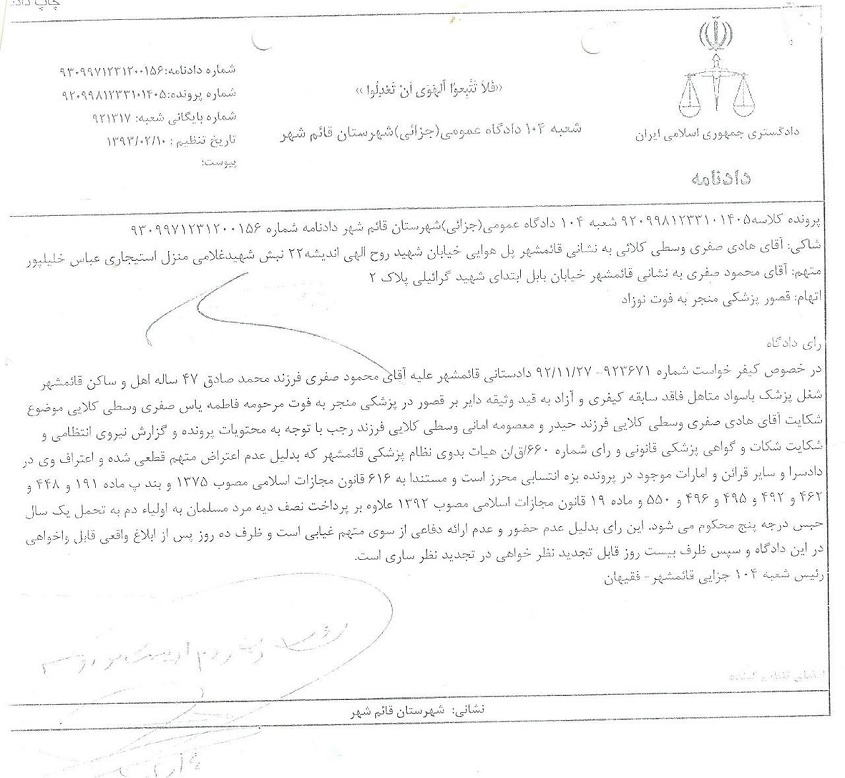 چاپ داد
شماره دادنامه:۹۳۰۹۹۷۱۲۳۱۲۰۰۱۵۶
شماره پرونده:۹۲۰۹۹۸۱۲۳۳۱۰۱۴۰۵
شماره بایگانی شعبه: ۹۲۱۲۱۷
تاریخ تنظیم : ۱۳۹۳/۰۲/۱۰
پیوست:
«فَلاَ تَتَّبِعوُا اَلهَویَ اَن تَعْدِلُوا»
شعبه ۱۰۴ دادگاه عمومی(جزائی)شهرستان قائم شهر
دادگستری جمهوری اسلامی ایران
دادنامه
پرونده کلاسه۹۲۰۹۹۸۱۲۳۳۱۰۱۴۰۵ شعبه ۱۰۴ دادگاه عمومی(جزائی)شهرستان قائم شهر دادنامه شماره ۹۳۰۹۹۷۱۲۳۱۲۰۰۱۵۶
شاکی: آقای هادی صفری وسطی کلائی به نشانی قائمشهر پل هوایی خیابان شهید روح الهی اندیشه۲۲ نبش شهیدغلامی منزل استیجاری عباس خلیلپور
متهم: آقای محمود صفری به نشانی قائمشهر خیابان بابل ابتدای شهید گرائیلی پلاک ۲
اتهام: قصور پزشکی منجر به فوت نوزاد
رای دادگاه
در خصوص کیفر خواست شماره ۹۲۳۶۷۱- ۹۲/۱۱/۲۷ دادستانی قائمشهر علیه آقای محمود صفری فرزند محمد صادق ۴۷ ساله اهل و ساکن قائمشهر
شغل پزشک باسواد متاهل فاقد سابقه کیفری و آزاد به قید وثیقه دایر بر قصور در پزشکی منجر به فوت مرحومه فاطمه یاس صفری وسطی کلایی موضوع
شکایت آقای هادی صفری وسطی کلایی فرزند حیدر و معصومه امانی وسطی کلایی فرزند رجب با توجه به محتویات پرونده و گزارش نیروی انتظامی و
شکایت شکات و گواهی پزشکی قانونی و رای شماره ۶۶۰/ق/ن هیات بدوی نظام پزشکی قائمشهر که بدلیل عدم اعتراض متهم قطعی شده و اعتراف وی در
دادسرا و سایر قرائن و امارات موجود در پرونده بزه انتسابی محرز است و مستندا به ۶۱۶ قانون مجازات اسلامی مصوب ۱۳۷۵ و بند پ ماده ۱۹۱ و ۴۴۸ و
۴۶۲ و ۴۹۲ و ۴۹۵ و ۴۹۶ و ۵۵۰ و ماده ۱۹ قانون مجازات اسلامی مصوب ۱۳۹۲ علاوه بر پرداخت نصف دیه مرد مسلمان به اولیاء دم به تحمل یک سال
حبس درجه پنج محکوم می شود. این رای بدلیل عدم حضور و عدم ارائه دفاعی از سوی متهم غیابی است و ظرف ده روز پس از ابلاغ واقعی قابل واخواهی
در این دادگاه و سپس ظرف بیست روز قابل تجدید نظر خواهی در تجدید نظر ساری است.
رئیس شعبه ۱۰۴ جزایی قائمشهر- فقیهان
نشانی: شهرستان قائم شهر